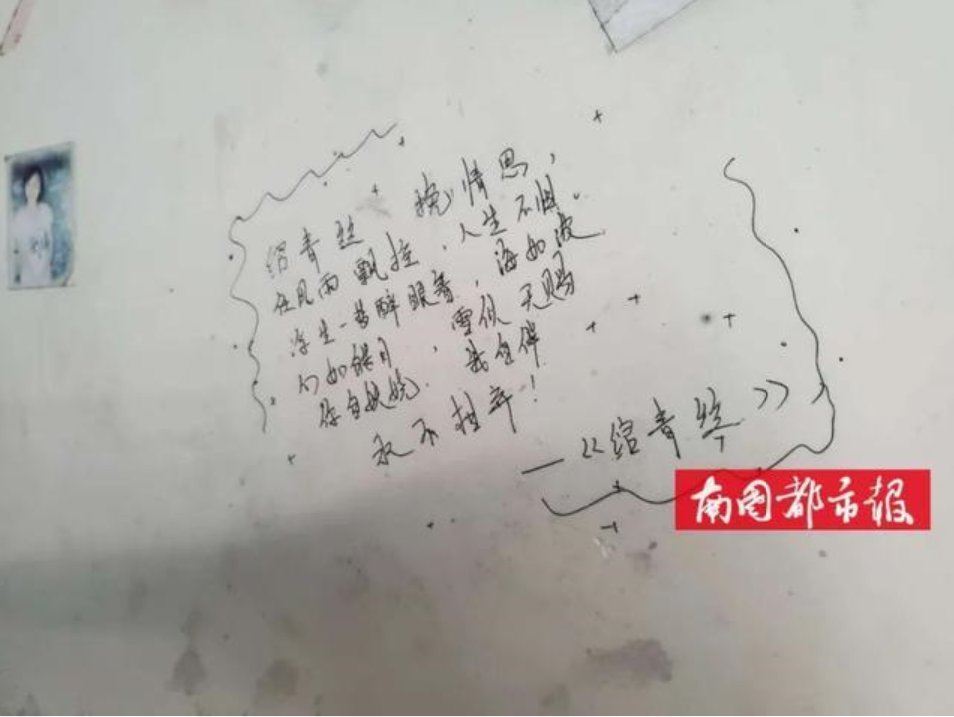 绾青丝 挽情思,
任风雨飘摇,人生不惧。
浮生一梦醉眼看,海如波
心如皓月,雪似天赐
你自妖娆.我自伴
永不相弃!
—《绾青丝》
南国都市报